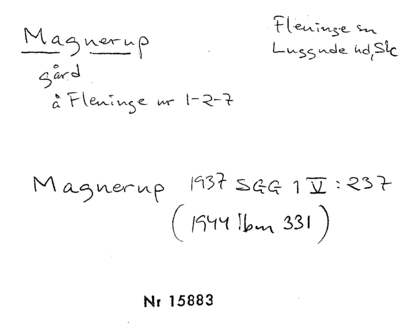 Magnerup
gård
å Fleninge nr 1-2-7
Fleninge sn
Luggude hd, Sk
Magnerup 1937 SGG 1 V : 237
(1944 lbm 331)
Nr 15883